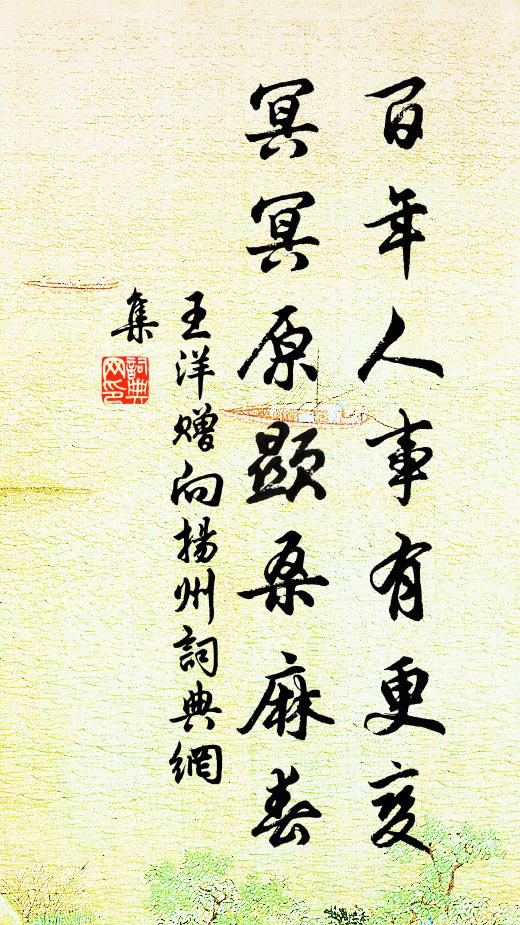 百年人事有更变
冥冥原显桑麻春
王洋赠向扬州詞典網
集
詞典
网印